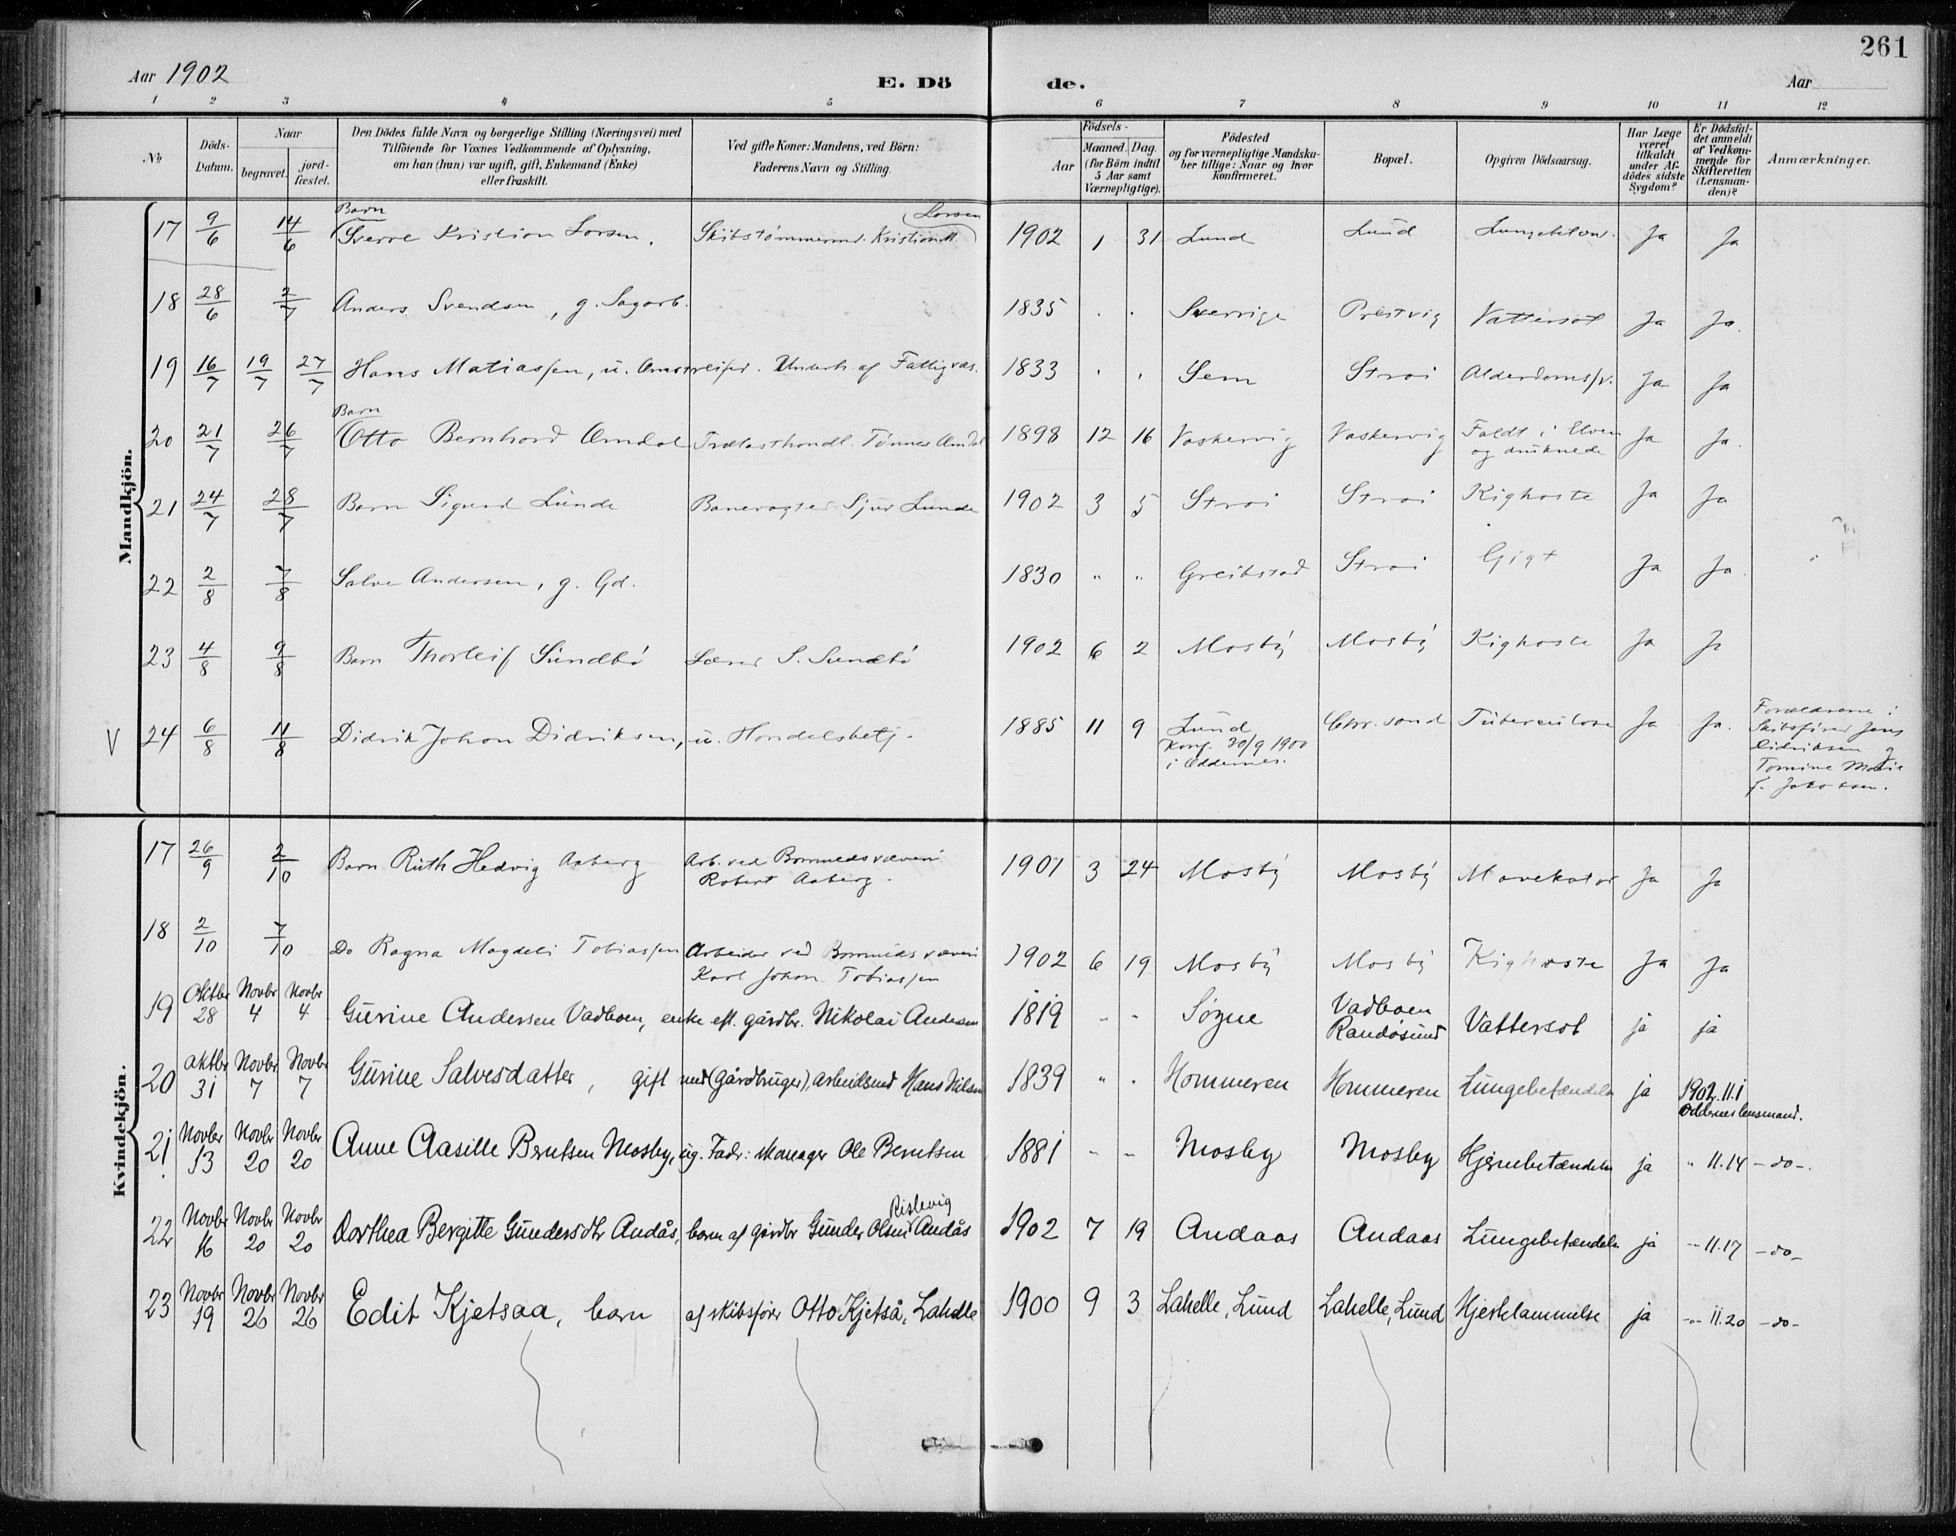 261
Aar 1902 E. Dö de. Aar
1 2 3 4 5 6 7 8 9 10 11 12
No Döds-Datum. Naar begravet. jord-fæstet. Den Dödes fulde Navn og borgerlige Stilling (Næringsvei) med Tilföiende for Voxnes Vedkommende af Oplysning, om han (hun) var ugift, gift, Enkemand (Enke) eller fraskilt. Ved gifte Koner: Mandens, ved Börn: Faderens Navn og Stilling. Födsels- Aar Maaned. Dag. (for Börn indtil 5 Aar samt Værnepligtige). Födested og for værnepligtige Mandska-ber tillige: Naar og hvor Konfirmeret. Bopæl. Opgiven Dödsaarsag. Har Læge været tilkaldt under Af-dödes sidste Sygdom? Er Dödsfal-det anmeldt af Vedkom-mende for Skifteretten (Lensman-den)? Anmærkninger.
Mandkjön.
17 9/6 14/6 Barn Sverre Kristian Larsen. Skibstømmermd. Kristian Larsen 1902 1 31 Lund Lund Ja Ja
18 28/6 2/7 Anders Svendsen, g. Sagarb. 1835 . . Sverrige Prestvig Vattersot Ja Ja.
19 16/7 19/7 27/7 Hans Matiassen, u. Omstreifer. Underh. af Fattigvæs. 1833 . . Sem Strai Alderdomssv. Ja Ja
20 21/7 26/7 Barn Otto Bernhard Omdal Trælasthandl. Tønnes Omdal 1898 12 16 Vaskervig Vaskervig Faldt i Elven og druknede Ja Ja.
21 24/7 28/7 Barn Sigurd Lunde Banevogter Sjur Lunde 1902 3 5 Strai Strai Kighoste Ja Ja
22 2/8 7/8 Salve Andersen, g. Gd. 1830 " " Greibstad Strai Gigt Ja Ja
23 4/8 9/8 Barn Thorleif Sundbø Lærer S. Sundbø 1902 6 2 Mosby Mosby Kighoste Ja Ja
V 24 6/8 11/8 Didrik Johan Didriksen, u. Handelsbetj. 1885 11 9 Lund Konf. 30/9 1900 i Oddernes. Chr.sand Tuberculose Ja Ja. Forældrene: Skibsfører Jens Didriksen og Tomine Marie f. Jakobsen.
Kvindekjön.
17 26/9 2/10 Barn Ruth Hedvig Aaberg Arb. ved Bommuldsvæveri Robert Aaberg. 1901 3 24 Mosby Mosby Mavekatar Ja Ja
18 2/10 7/10 Do Ragna Magdeli Tobiassen Arbeider ved Bomuldsvæveri Karl Johan Tobiassen 1902 6 19 Mosby Mosby Kighoste Ja Ja
19 Oktbr 28 Novbr 4 Novbr 4 Gurine Andersen Vadboen, enke eft. gårdbr. Nikolai Andersen 1819 - - Søgne Vadboen Randøsund Vattersot ja ja
20 Oktbr 31 Novbr 7 Novbr 7 Gurine Salvesdatter, gift med (gårdbruger), arbeidsmd Hans Nilsen 1839 " . Hommeren Hommeren Lungebetændelse ja 1902.11.1 Oddernes lensmand.
21 Novbr 13 Novbr 20 Novbr 20 Anne Aasille Berntsen Mosby, ug. Fadr: Manager Ole Berntsen 1881 - - Mosby Mosby Hjernebetændelse ja " 11.14 -do-.
22 Novbr 16 Novbr 20 Novbr 20 Dorthea Bergitte Gundersdtr Andås, barn af gårdbr Gunder Olsen Rislevig Andås 1902 7 19 Andaas Andaas Lungebetændelse ja -"- 11.17 -do-
23 Novbr 19 Novbr 26 Novbr 26 Edit Kjetsaa, barn af skibsfører Otto Kjetså, Lahelle 1900 9 3 Lahelle, Lund Lahelle, Lund Hjertelammelse ja -"- 11.20 -do-